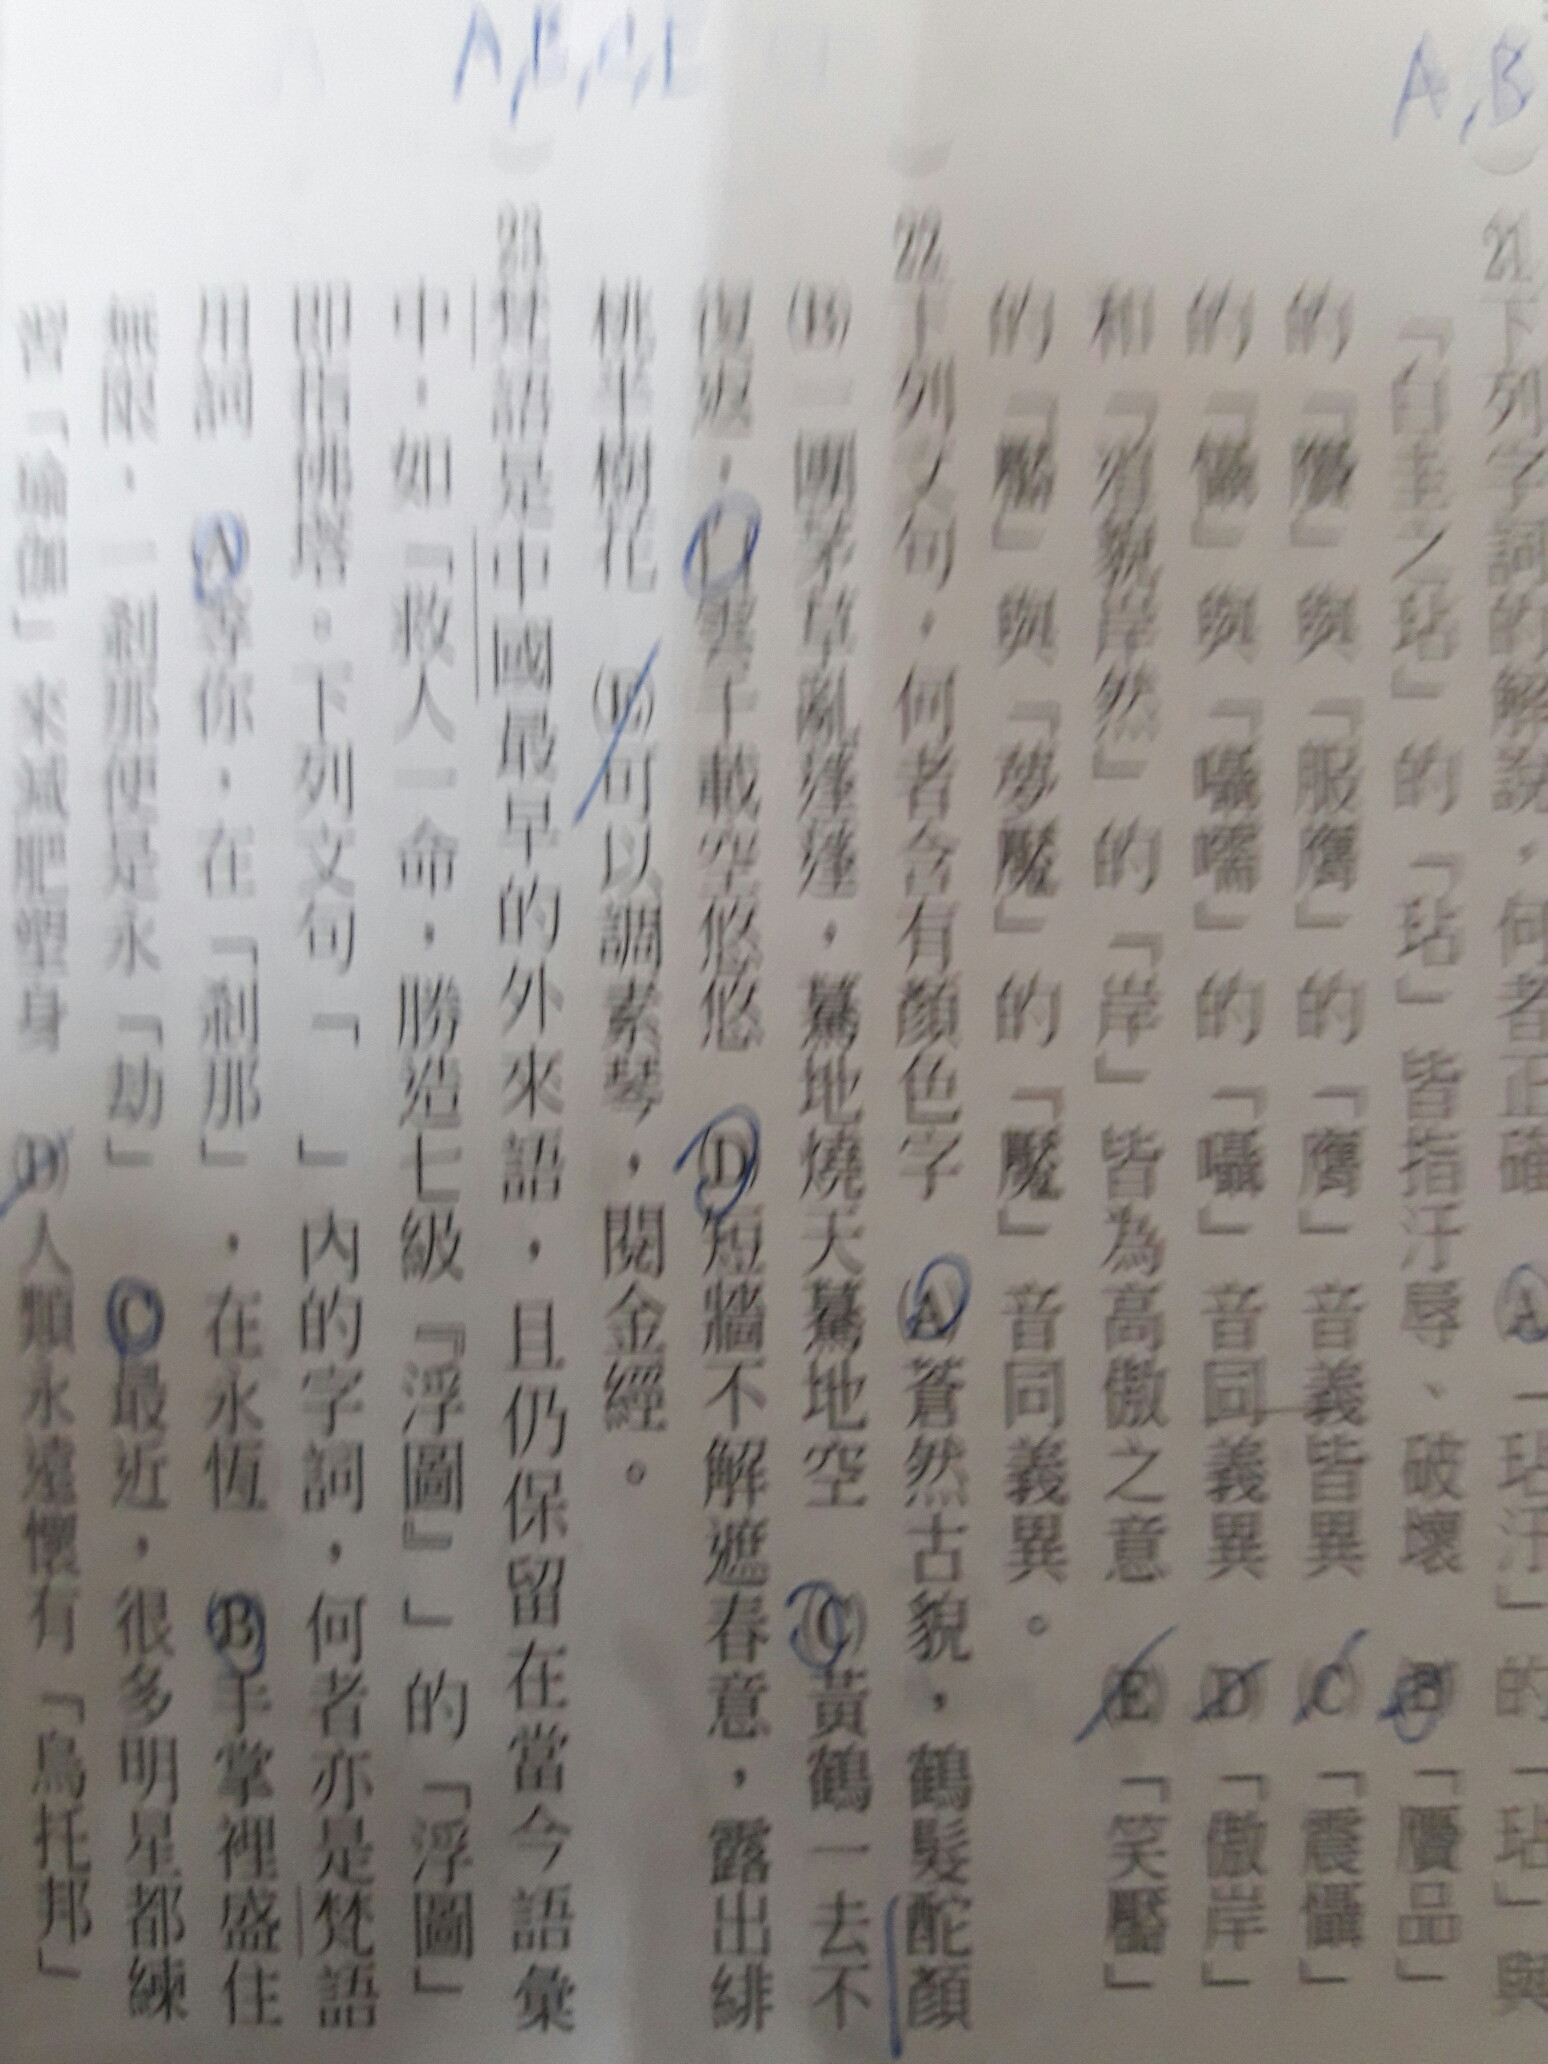 A,B
21.下列字詞的解說，何者正確　(A)「玷汙」的「玷」與
「白圭之玷」的「玷」皆指汙辱、破壞　(B)「贗品」
的「贗」與「服膺」的「膺」音義皆異　(C)「震懾」
的「懾」與「囁嚅」的「囁」音同義異　(D)「傲岸」
和「道貌岸然」的「岸」皆為高傲之意　(E)「笑靨」
的「靨」與「夢魘」的「魘」音同義異。
22.下列文句，何者含有顏色字　(A)蒼然古貌，鶴髮酡顏
(B)一團茅草亂蓬蓬，驀地燒天驀地空　(C)黃鶴一去不
復返，白雲千載空悠悠　(D)短牆不解遮春意，露出緋
桃半樹花　(E)可以調素琴，閱金經。
A,B,C,E
23.梵語是中國最早的外來語，且仍保留在當今語彙
中，如「救人一命，勝造七級『浮圖』」的「浮圖」
即指佛塔。下列文句「　」內的字詞，何者亦是梵語
用詞　(A)等你，在「剎那」，在永恆　(B)手掌裡盛住
無限，一剎那便是永「劫」　(C)最近，很多明星都練
習「瑜伽」來減肥塑身　(D)人類永遠懷有「烏托邦」